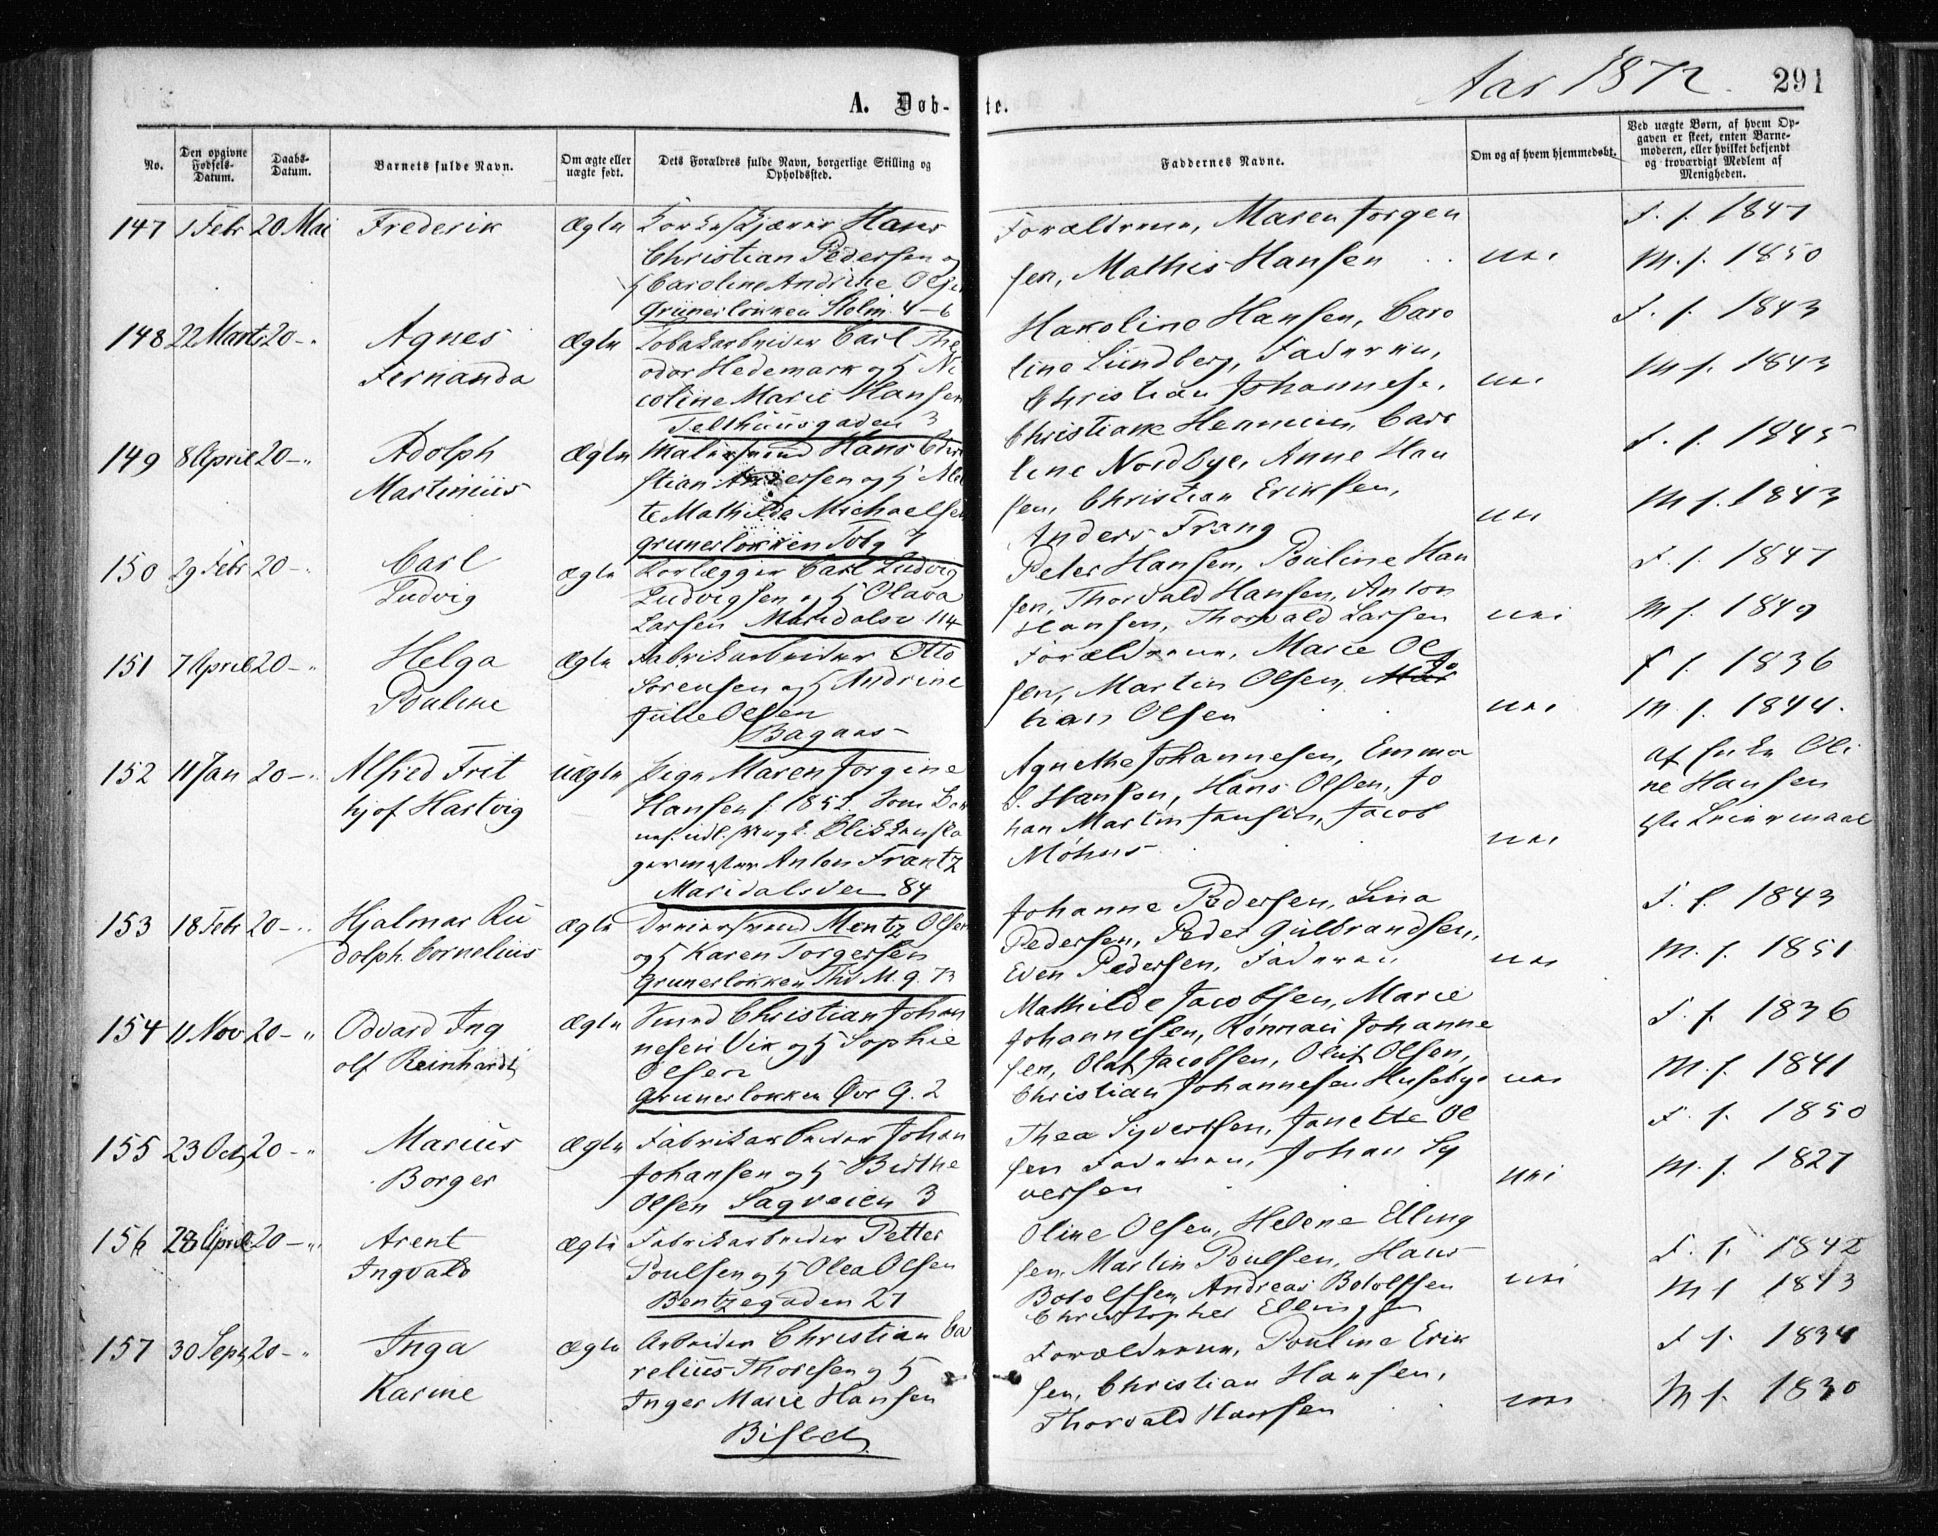 Aar 1872. 291
A. Døb- te.
No.
Den opgivne Fødsels-Datum.
Daabs-Datum.
Barnets fulde Navn.
Om ægte eller uægte født.
Dets Forældres fulde Navn, borgerlige Stilling og Opholdssted.
Faddernes Navne.
Om og af hvem hjemmedøbt.
Ved uægte Børn, af hvem Opgaven er skeet, enten Barnemoderen, eller hvilket bekjendt og troværdigt Medlem af Menigheden.
147 1 Febr 20 Mai Frederik Ægte Korkeskjærer Hans
Christian Pedersen og
H Caroline Andrine Olsen
Grünerløkken Holm. 4-6
Forældrene, Maren Jørgen
sen, Mathis Hansen nei
F. f. 1847
M. f. 1850
148 22 Marts 20 - " Agnes
Fernanda
Ægte Tobakarbeider Carl The
odor Hedemark og H Ni
coline Marie Hansen
Telthuusgaden 3
Karoline Hansen, Caro
line Lundberg, Faderen,
Christian Johannese. nei
F. f. 1843
M f. 1843
149 8 April 20 - " Adolph
Martinius
Ægte Malersvend Hans Chri
stian Andersen og H
te Mathilde Michaelsen
Grünerløkken Tvbg 7
Christiane Henriksen, Caro
line Nordbye, Anne Han
sen, Christian Eriksen,
Anders Frang nei
F. f. 1845
M f. 1843
150 29 Febr 20 - " Carl
Ludvig
ægte Rørlægger Carl Ludvig
Ludvigsen og H Olava
Larsen Maridalsv. 114
Peter Hansen, Pouline Han
sen, Thorvald Hansen, Anton
Hansen, Thorvald Larsen nei
F. f. 1847
M f. 1849
151 7 April 20 - " Helga
Pauline
Ægte Fabrikarbeider Otto
Sørensen og H Andrine
Julie Olsen
Bagaas
Forældrene, Marie Ol
sen, Martin Olsen, Mar
tian Olsen nei
F f. 1836
M f. 1844.
152 11 Jan 20 - " Alfred Frit
hjof Hartvig
Uægte Pige Maren Jørgine
Hansen f. 1851. Som Bar
nef. udl. Blikkensla
germester Anton Frantz
Maridalsveien 84
Agnethe Johannesen, Emma
S. Hansen, Hans Olsen, Jo
han Martin Jensen, Jacob
Møhus nei
af Enke Oli
ne Hansen
1ste Leiermaal
153 18 Febr 20 - " Hjalmar Ru
dolph Cornelius
ægte Dreiersvend Mentz Olsen
og H Karen Torgersen
Grünerløkken Thv M. g. 73
Johanne Pedersen, Lina
Pedersen, Peder Gulbrandsen,
Even Pedersen, Faderen nei
F. f. 1843
M. f. 1851
154 11 Nov 20 - " Odvard Ing
olf Reinhardt
Ægte Smed Christian Johan
nesen Vik og H Sophie
Olsen
Grünerløkken Øvr G. 2
Mathilde Jacobsen, Marie
Johannesen, Rønnau Johanne
sen, Olaf Jacobsen, Oluf Olsen,
Christian Johannesen Husebye nei
F. f. 1836
M. f. 1841
155 23 Oct 20 - " Marius
Borger
Ægte Fabrikarbeider Johan
Johansen og H Birthe
Olsen Sagveien 3
Thea Syversen, Janette Ol
sen Faderen, Johan Sy
versen nei
F. f. 1850
M. f. 1827
156 28 April 20 - " Arent
Ingvald
Ægte Fabrikarbeider Petter
Poulsen og H Olea Olsen
Bentzegaden 21
Oline Olsen, Helene Elling
sen, Martin Poulsen, Hans
Botolfsen, Andreas Botolfsen
Christopher Ellingsen nei
F. f. 1842
M f 1843
157 30 Sept 20 - " Inga
Karine
ægte Arbeider Christian Co
relius Thoresen og H
Inger Marie Hansen
Bislet
Forældrene, Pouline Erik
sen, Christian Hansen,
Thorvald Hansen nei
F f. 1834
M f. 1830